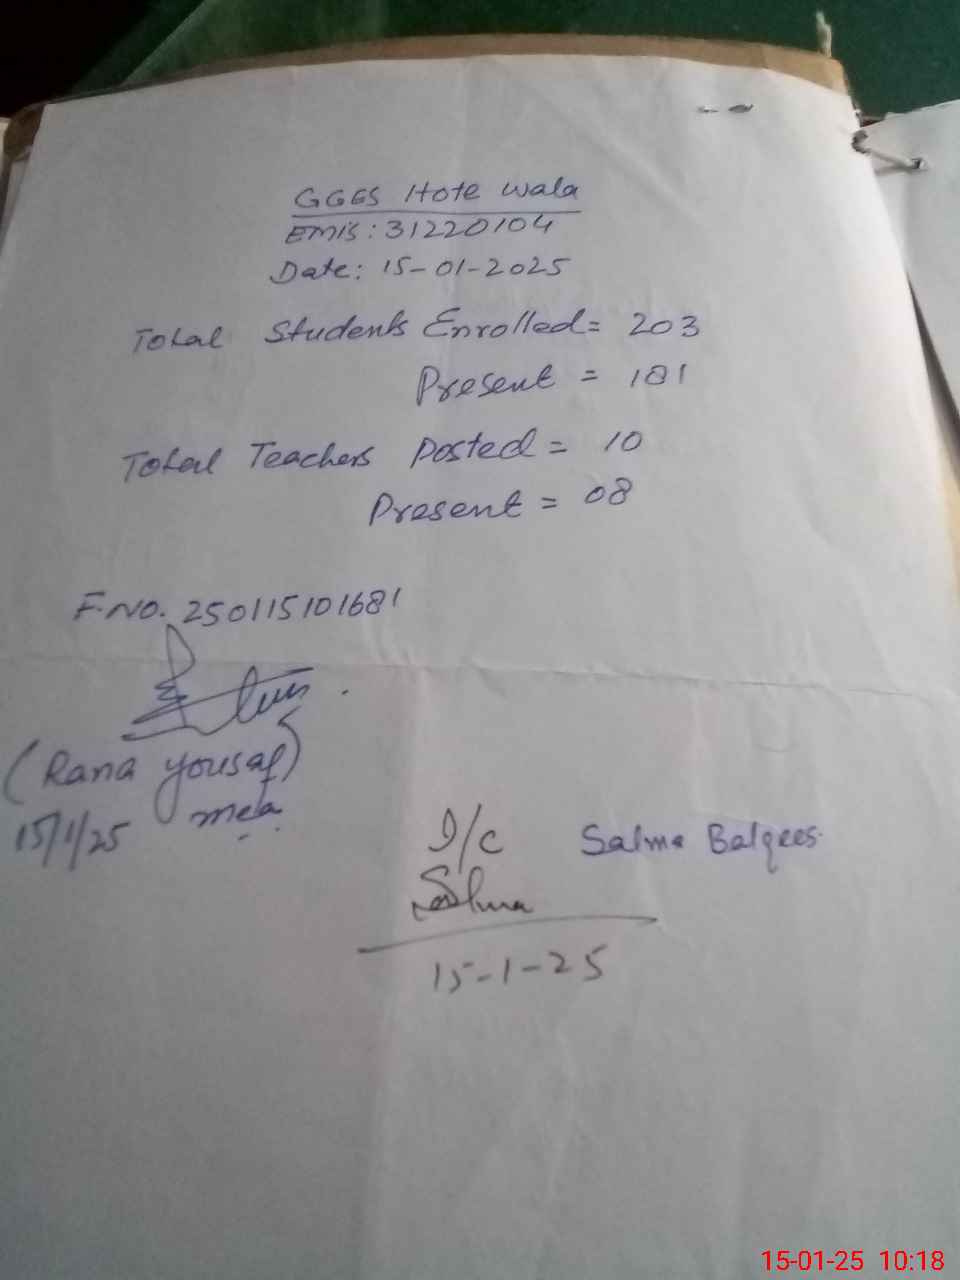 GGES Hote wala
EMIS: 31220104
Date: 15-01-2025
Total Students Enrolled= 203
Present = 181
Total Teachers Posted= 10
Present = 08
F.No. 250115101681
(Rana yousaf)
15/1/25 mea
I/C Salma Balqees.
Salma
15-1-25
15-01-25 10:18